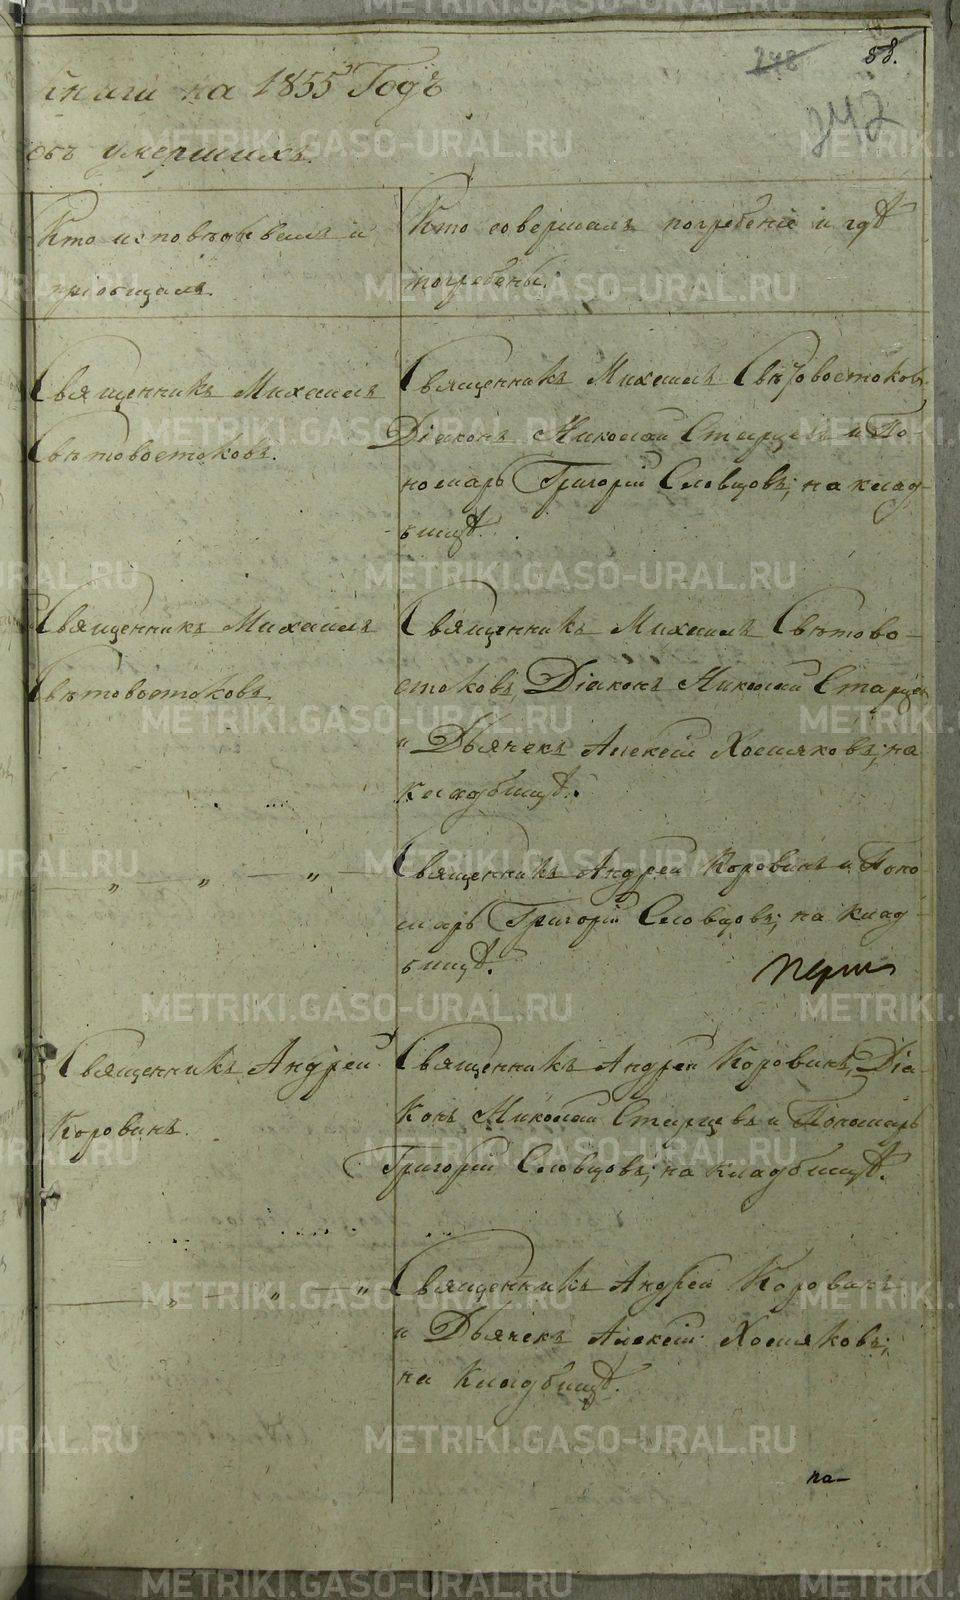 248
58.
242
книги на 1855й Годъ
объ умершихъ.
Кто исповѣдывалъ и
пріобщалъ.
Кто совершалъ погребеніе и гдѣ
погребены.
Священникъ Михаилъ
Свѣтовостоковъ.
Священникъ Михаилъ Свѣтовостоковъ,
Діаконъ Николай Старцевъ и По-
номарь Григорій Словцовъ; на клад-
бищѣ.
Священникъ Михаилъ
Свѣтовостоковъ.
Священникъ Михаилъ Свѣтово-
стоковъ, Діаконъ Николай Старцевъ
и Дьячекъ Алексій Хомяковъ; на
кладбищѣ.
— „ — „ — „ —
Священникъ Андрей Коровинъ и Поно-
марь Григорій Словцовъ; на клад-
бищѣ.
Священникъ Андрей
Коровинъ.
Священникъ Андрей Коровинъ, Діа-
конъ Николай Старцевъ и Пономарь
Григорій Словцовъ; на кладбищѣ.
— „ — „ — „
Священникъ Андрей Коровинъ
и Дьячекъ Алексій Хомяковъ;
на Кладбищѣ.
па-
METRIKI.GASO-URAL.RU